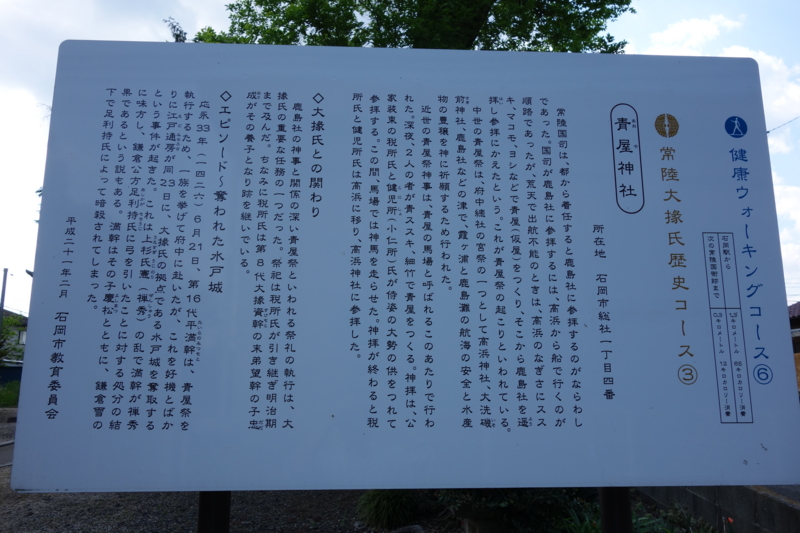 健康ウォーキングコース⑥
石岡駅から 1.5キロメートル 65キロカロリー消費
次の常陸国衙跡まで 0.3キロメートル 12キロカロリー消費
常陸大掾氏歴史コース③
青屋神社
所在地 石岡市総社一丁目四番
常陸国司は、都から着任すると鹿島社に参拝するのがならわし
であった。国司が鹿島社に参拝するには、高浜から船で行くのが
順路であったが、荒天で出航不能のときは、高浜のなぎさにスス
キ、マコモ、ヨシなどで青屋(仮屋)をつくり、そこから鹿島社を遥
拝し参拝にかえたという。これが青屋祭の起こりといわれている。
中世の青屋祭は、府中總社の宮祭の一つとして高浜神社、大洗磯
前神社、鹿島社などの津で、霞ヶ浦と鹿島灘の航海の安全と水産
物の豊穣を神に祈願するため行われた。
近世の青屋祭神事は、青屋の馬場と呼ばれるこのあたりで行わ
れた。深夜、2人の者が青ススキ、細竹で青屋をつくる。神拝は、公
家装束の税所氏と健児所(小仁所)氏が侍姿の大勢の供をつれて
参拝する。この間、馬場では神馬を走らせた。神拝が終わると税
所氏と健児所氏は高浜に移り、高浜神社に参拝した。
◇大掾氏との関わり
鹿島社の神事と関係の深い青屋祭といわれる祭礼の執行は、大
掾氏の重要な任務の一つだった。祭祀は税所氏が引き継ぎ明治期
まで及んだ。ちなみに税所氏は第8代大掾資幹の末弟望幹の子忠
成がその養子となり跡を継いでいる。
◇エピソード～奪われた水戸城
応永33年(一四二六)6月21日、第16代平満幹は、青屋祭を
執行するため、一族を挙げて府中に赴いたが、これを好機とばか
りに江戸通房が同23日に、大掾氏の拠点である水戸城を奪取する
という事件が起きた。これは上杉氏憲(禅秀)の乱で満幹が禅秀
に味方し、鎌倉公方足利持氏に弓を引いたことに対する処分の結
果であるという説もある。満幹はその子慶松とともに、鎌倉雪の
下で足利持氏によって暗殺されてしまった。
平成二十一年二月 石岡市教育委員会